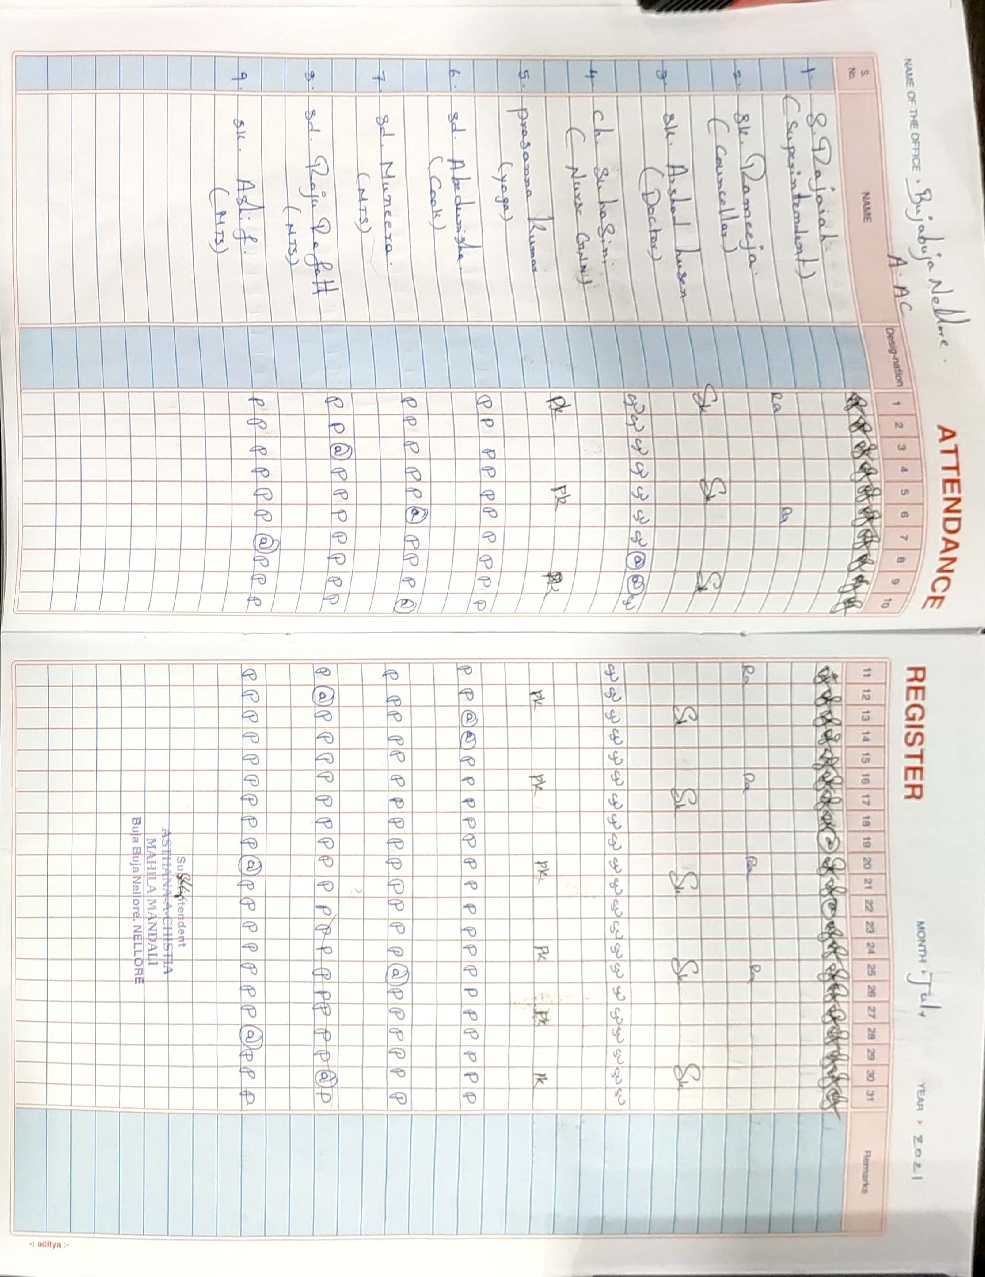 ATTENDANCE REGISTER
NAME OF THE OFFICE : Bujabuja Nellore.
A.AC
MONTH : July YEAR : 2021
S. No. NAME Desig-nation 1 2 3 4 5 6 7 8 9 10 11 12 13 14 15 16 17 18 19 20 21 22 23 24 25 26 27 28 29 30 31 Remarks
1. S. Rajaiah
(Superintendent)
2. Sk. Rameeja. Ra Ra Ra Ra Ra Ra
(Councellor)
3. Sk. Ashad husen Sk Sk Sk Sk Sk Sk Sk Sk
(Doctor)
4. Ch. Suhasini
(Nurse
5. Prasanna Kumar Pk Pk Pk Pk Pk Pk Pk Pk Pk
(yoga)
6. Sd. Abedunisha P P P P P P P P P P P P a a P P P P P P P P P P P P P P P P P
(Cook)
7. Sd. Muneera. P P P P P a P P P a P P P P P P P P P P P P P P a P P P P P P
(MTS)
8. Sd. Raja Rafatt P P a P P P P P P P P a P P P P P P P P P P P P P P P P P a P
(MTS)
9. Sk. Asif. P P P P P P a P P P P P P P P P P P P a P P P P P P P a P P P
(MTS)
Superintendent
ASTHANA-A-CHISTIA
MAHILA MANDALI
Buja Buja Nellore. NELLORE
-: aditya :-